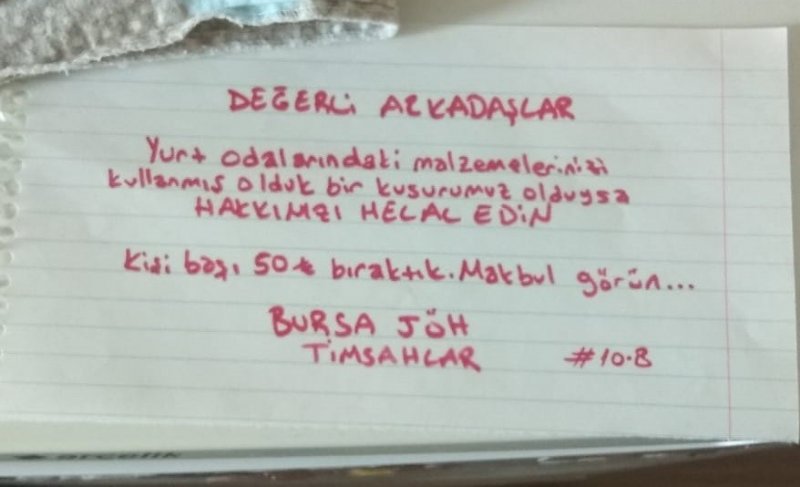 DEĞERLİ ARKADAŞLAR
Yurt odalarındaki malzemelerinizi
kullanmış olduk bir kusurumuz olduysa
HAKKIMZI HELAL EDİN
Kişi başı 50₺ bıraktık. Makbul görün...
BURSA JÖH
TİMSAHLAR #10-B
arçelik